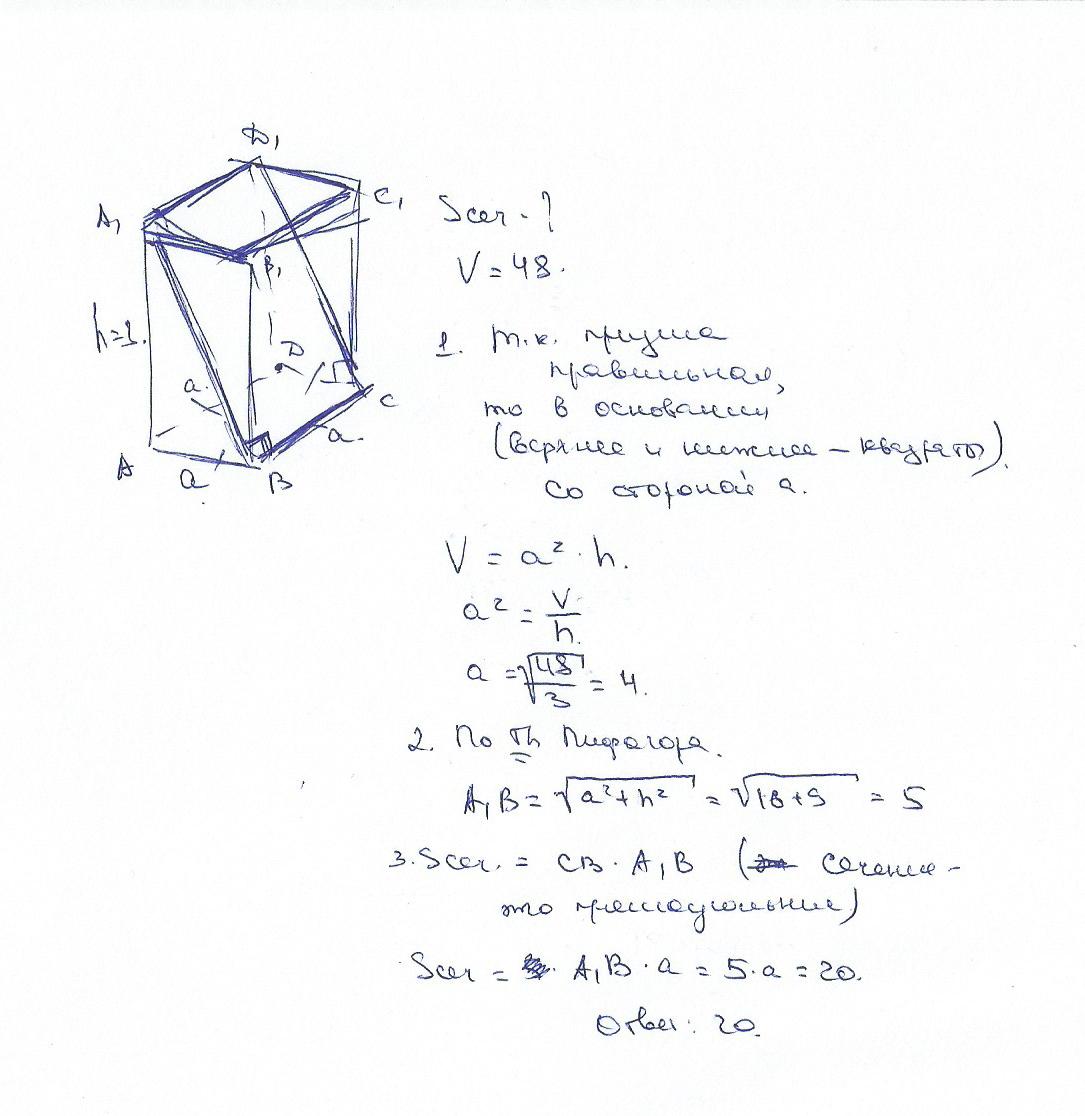 D₁
A₁
C₁
B₁
h=3.
D
a.
C
a.
A
a
B
Sсеч - ?
V = 48.
1. т.к. призма
правильная,
то в основании
(верхнее и нижнее – квадраты).
со стороной a.
V = a² · h.
a² = V/h.
a = √48/3 = 4.
2. По Th Пифагора.
A₁B = √a²+h² = √16+9 = 5
3. Sсеч. = CB · A₁B ( сечение –
это прямоугольник)
Sсеч = A₁B · a = 5 · a = 20.
Ответ: 20.